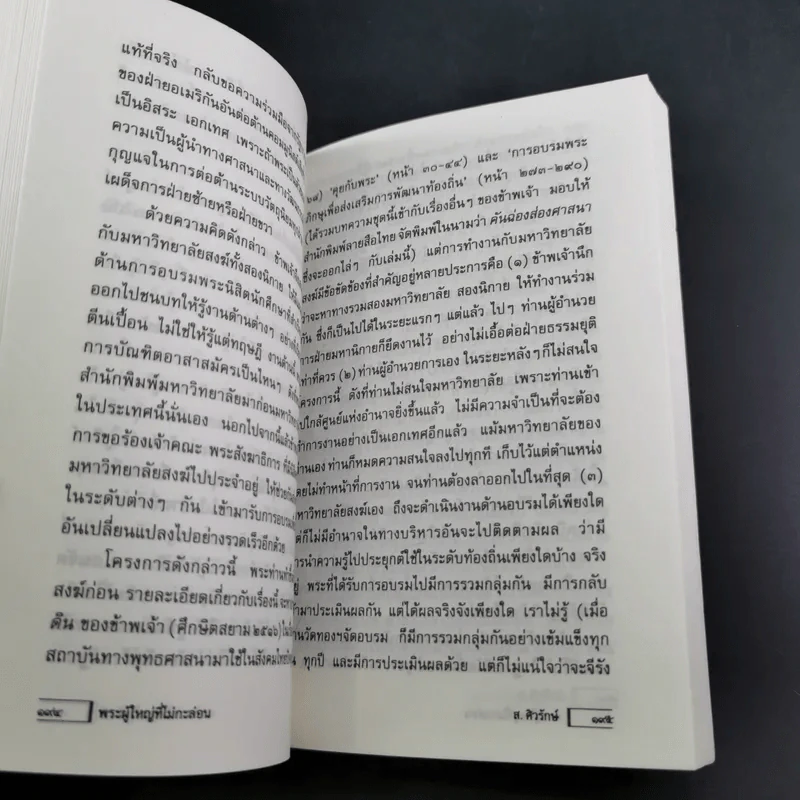 แท้ที่จริง กลับขอความร่วมมือจาก
ของฝ่ายอเมริกันอันต่อต้านคอมมูนิสต์
เป็นอิสระ เอกเทศ เพราะถ้าพระเป็น
ความเป็นผู้นำทางศาสนาและทาง
กุญแจในการต่อต้านระบบวัตถุนิยม
เผด็จการฝ่ายซ้ายหรือฝ่ายขวา
ด้วยความคิดดังกล่าว ข้าพเจ้า
กับมหาวิทยาลัยสงฆ์ทั้งสองนิกาย ให้
ด้านการอบรมพระนิสิตนักศึกษาที่
ออกไปชนบทให้รู้งานด้านต่างๆ อย่าง
ตีนเปื้อน ไม่ใช่ให้รู้แต่ทฤษฎี งานด้าน
การบัณฑิตอาสาสมัครเป็นไหนๆ
สำนักพิมพ์มหาวิทยาลัยมาก่อนมหาวิ
ในประเทศนี้นั่นเอง นอกไปจากนี้แล้ว
การขอร้องเจ้าคณะ พระสังฆาธิการ ที่
มหาวิทยาลัยสงฆ์ไปประจำอยู่ ให้ช่วย
ในระดับต่างๆ กัน เข้ามารับการอบรม
อันเปลี่ยนแปลงไปอย่างรวดเร็วอีกด้วย
โครงการดังกล่าวนี้ พระท่านทำ
สงฆ์ก่อน รายละเอียดเกี่ยวกับเรื่องนี้
ดิน ของข้าพเจ้า (ศึกษิตสยาม ๒๕๑๖)
สถาบันทางพุทธศาสนามาใช้ในสังคมไทย
๑๑๔ พระผู้ใหญ่ที่ไม่กะล่อน
๒๙) ‘คุยกับพระ’ (หน้า ๓๐-๔๔) และ ‘การอบรมพระ
ภิกษุเพื่อส่งเสริมการพัฒนาท้องถิ่น’ (หน้า ๒๗๓-๒๙๐)
(ได้รวมบทความชุดนี้เข้ากับเรื่องอื่นๆ ของข้าพเจ้า มอบให้
สำนักพิมพ์ลายสือไทย จัดพิมพ์ในนามว่า คันฉ่องส่องศาสนา
ซึ่งจะออกไล่ๆ กับเล่มนี้) แต่การทำงานกับมหาวิทยาลัย
สงฆ์มีข้อขัดข้องที่สำคัญอยู่หลายประการคือ (๑) ข้าพเจ้านึก
ว่าจะหาทางรวมสองมหาวิทยาลัย สองนิกาย ให้ทำงานร่วม
กัน ซึ่งก็เป็นไปได้ในระยะแรกๆ แต่แล้ว ไปๆ ท่านผู้อำนวย
การฝ่ายมหานิกายก็ยึดงานไว้ อย่างไม่เอื้อต่อฝ่ายธรรมยุติ
เท่าที่ควร (๒) ท่านผู้อำนวยการเอง ในระยะหลังๆ ก็ไม่สนใจ
โครงการนี้ ดังที่ท่านไม่สนใจมหาวิทยาลัย เพราะท่านเข้า
ไปใกล้ศูนย์แห่งอำนาจยิ่งขึ้นแล้ว ไม่มีความจำเป็นที่จะต้อง
ทำการงานอย่างเป็นเอกเทศอีกแล้ว แม้มหาวิทยาลัยของ
ท่านเอง ท่านก็หมดความสนใจลงไปทุกที เก็บไว้แต่ตำแหน่ง
โดยไม่ทำหน้าที่การงาน จนท่านต้องลาออกไปในที่สุด (๓)
มหาวิทยาลัยสงฆ์เอง ถึงจะดำเนินงานด้านอบรมได้เพียงใด
แต่ก็ไม่มีอำนาจในทางบริหารอันจะไปติดตามผล ว่ามี
การนำความรู้ไปประยุกต์ใช้ในระดับท้องถิ่นเพียงใดบ้าง จริง
อยู่ พระที่ได้รับการอบรมไปมีการรวมกลุ่มกัน มีการกลับ
เข้ามาประเมินผลกัน แต่ได้ผลจริงจังเพียงใด เราไม่รู้ (เมื่อ
ท่านวัดทองฯจัดอบรม ก็มีการรวมกลุ่มกันอย่างเข้มแข็งทุก
ทุกปี และมีการประเมินผลด้วย แต่ก็ไม่แน่ใจว่าจะจีรัง
ส. ศิวรักษ์ ๑๑๕